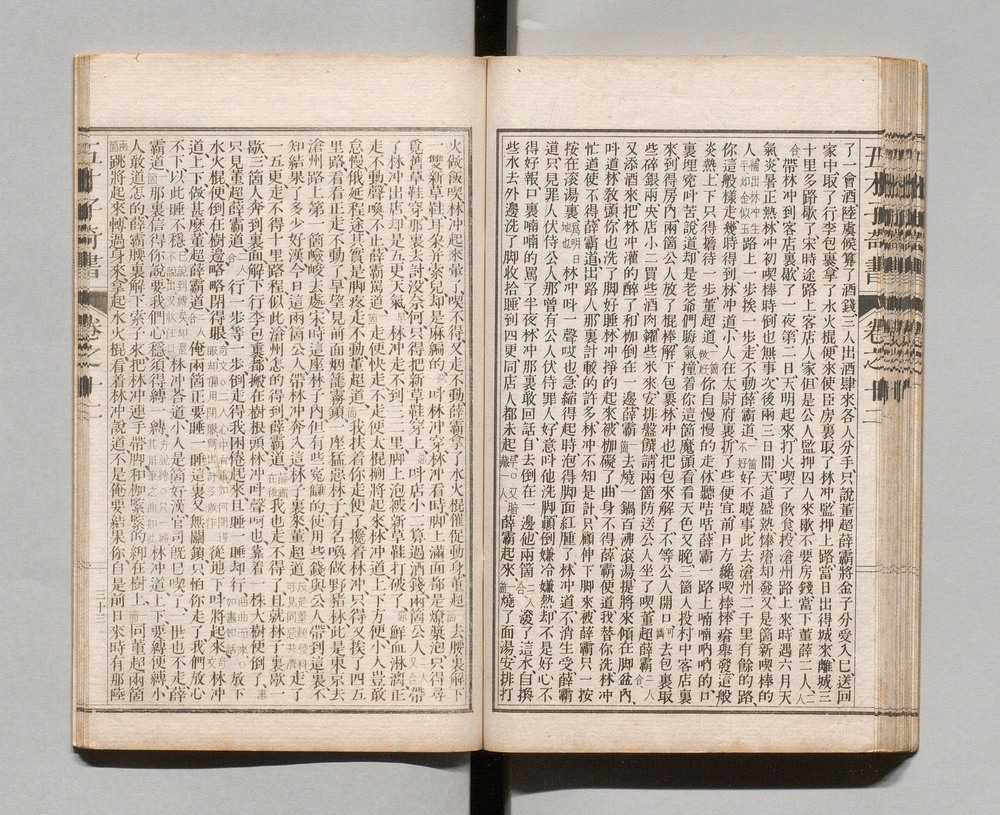 了一會酒陸虞候算了酒錢三人出酒肆來各人分手只說董超薛霸將金子分受入已送回
家中取了行李包裹拿了水火棍便來使臣房裏取了林冲監押上路當日出得城來離城三
十里多路歇了宋時途路上客店人家但是公人監押囚人來歇不要房錢當下董薛二人
帶林冲到客店裏歇了一夜第二日天明起來打火喫了飲食投滄州路上來時遇六月天
氣炎暑正熱林冲初喫棒時倒也無事次後兩三日間天道盛熱棒瘡却發又是箇新喫棒的
人路上一步挨一步走不動薛霸道好不曉事此去滄州二千里有餘的路
你這般樣走幾時得到林冲道小人在太尉府裏折了些便宜前日方纔喫棒棒瘡舉發這般
炎熱上下只得擔待一步董超道你自慢慢的走休聽咭咶薛霸一路上喃喃吶吶的口
裏埋寃叫苦說道却是老爺們晦氣撞着你這箇魔頭看看天色又晚三箇人投村中客店裏
來到得房內兩箇公人放了棍棒解下包裹林冲也把包來解了不等公人開口去包裹取
些碎銀兩央店小二買些酒肉糴些米來安排盤饌請兩箇防送公人坐了喫董超薛霸
又添酒來把林冲灌的醉了和枷倒在一邊薛霸去燒一鍋百沸滾湯提將來傾在脚盆內
叫道林教頭你也洗了脚好睡林冲掙的起來被枷礙了曲身不得薛霸便道我替你洗林冲
忙道使不得薛霸道出路人那裏計較的許多林冲不知是計只顧伸下脚來被薛霸只一按
按在滾湯裏林冲叫一聲哎也急縮得起時泡得脚面紅腫了林冲道不消生受薛霸
道只見罪人伏侍公人那曾有公人伏侍罪人好意叫他洗脚顛倒嫌冷嫌熱却不是好心不
得好報口裏喃喃的罵了半夜林冲那裏敢回話自去倒在一邊他兩箇潑了這水自換
些水去外邊洗了脚收拾睡到四更同店人都未起薛霸起來燒了面湯安排打
火做飯喫林冲起來暈了喫不得又走不動薛霸拿了水火棍催促動身董超去腰裏解下
一雙新草鞋耳朶并索兒却是麻編的叫林冲穿林冲看時脚上滿面都是燎漿泡只得尋
覓舊草鞋穿那裏去討沒奈何只得把新草鞋穿上叫店小二算過酒錢兩箇公人帶
了林冲出店却是五更天氣林冲走不到三二里脚上泡被新草鞋打破了鮮血淋漓正
走不動聲喚不止薛霸罵道走便快走不走便大棍搠將起來林冲道上下方便小人豈敢
怠慢俄延程途其實是脚疼走不動董超道我扶着你走便了攙着林冲只得又挨了四五
里路看看正走不動了早望見前面烟籠霧鎖一座猛惡林子有名喚做野猪林此是東京去
滄州路上第一箇嶮峻去處宋時這座林子內但有些寃讎的使用些錢與公人帶到這裏不
知結果了多少好漢今日這兩箇公人帶林冲奔入這林子裏來董超道走了
一五更走不得十里路程似此滄州怎的得到薛霸道我也走不得了且就林子裏歇一
歇三箇人奔到裏面解下行李包裹都搬在樹根頭林冲叫聲呵也靠着一株大樹便倒了
只見董超薛霸道行一步等一步倒走得我困倦起來且睡一睡却行放下
水火棍便倒在樹邊略略閉得眼從地下叫將起來林冲
道上下做甚麼董超薛霸道俺兩箇正要睡一睡這裏又無關鎖只怕你走了我們放心
不下以此睡不穩林冲答道小人是箇好漢官司旣已喫了一世也不走薛
霸道那裏信得你說要我們心穩須得縛一縛林冲道上下要縛便縛小
人敢道怎的薛霸腰裏解下索子來把林冲連手帶脚和枷緊緊的綁在樹上同董超兩箇
跳將起來轉過身來拿起水火棍看着林冲說道不是俺要結果你自是前日來時有那陸